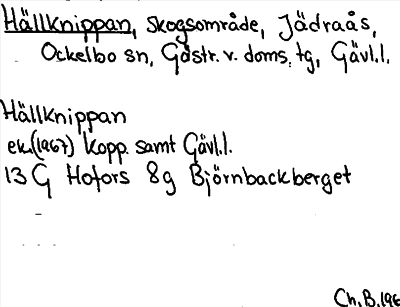 Hällknippan, Skogsområde, Jädraås,
Ockelbo sn, Gästr. v. doms. tg, Gävl.l.
Hällknippan
ek.(1967) Kopp. samt Gävl.l.
13 G Hofors 8g Björnbackberget
Ch.B.196